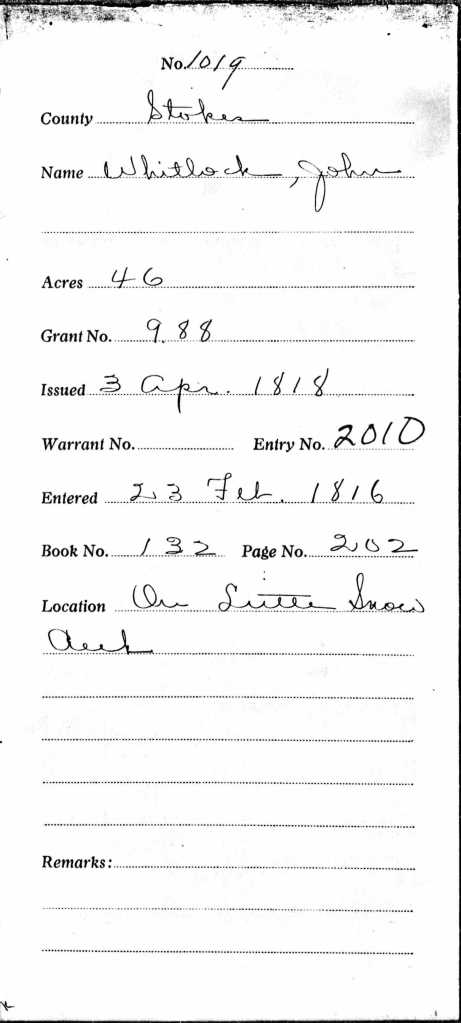 No. 1019
County Stokes
Name Whitlock, John
Acres 46
Grant No. 988
Issued 3 Apr. 1818
Warrant No. Entry No. 2010
Entered 23 Feb. 1816
Book No. 132 Page No. 202
Location On Little Snow
Creek
Remarks: